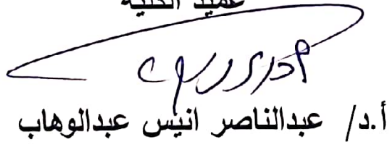 عميد الكلية
أ.د/ عبدالناصر انيس عبدالوهاب